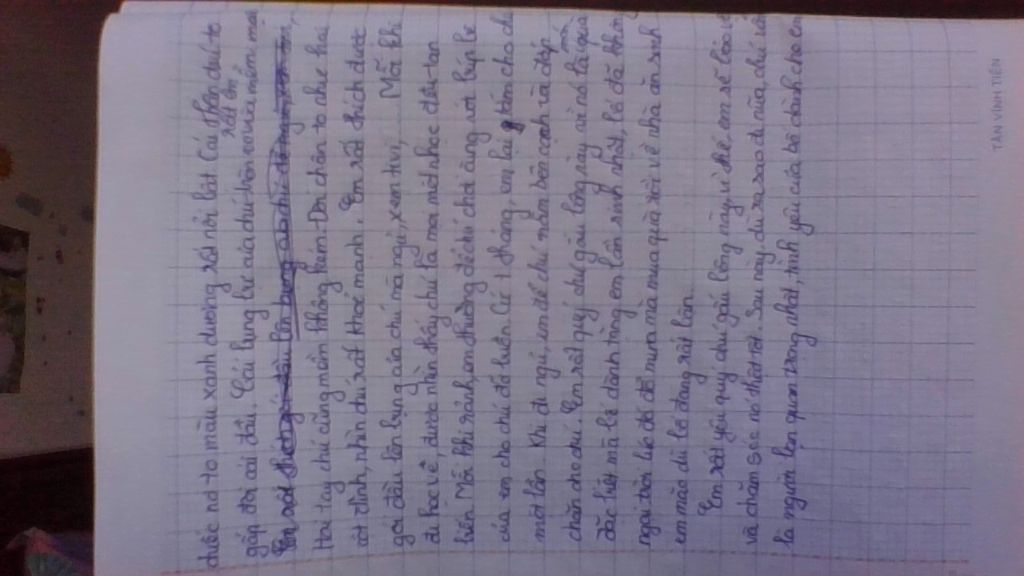 chiếc nơ to màu xanh dương rất nổi bật. Cái thân chú to
rất êm,
gấp đôi cái đầu. Cái lưng của chú mềm mại
Hai tay chú cũng mềm không kém. Đôi chân to như hai
cột đình, nhìn chú rất khoẻ mạnh. Em rất thích được
gối đầu lên bụng của chú mà ngủ, xem tivi, Mỗi khi
đi học về, được nhìn thấy chú là mọi mệt nhọc đều tan
biến. Mỗi khi rảnh, em thường để chú chơi cùng với búp bê
của em cho chú đỡ buồn. Cứ 1 tháng, em lại tắm cho chú
một lần. Khi đi ngủ, em để chú nằm bên cạnh và đắp
chăn cho chú. Em rất quý chú gấu bông này vì nó là món quà
đặc biệt mà bố dành tặng em lần sinh nhật, bố đã
ngoài trời lúc đó đổ mưa mà mua quà rồi về nhà ăn sinh
em mặc dù bố đang rất bận.
Em rất yêu quý chú gấu bông này vì thế, em sẽ bảo
và chăm sóc nó thật tốt. Sau này, dù ra sao đi nữa, chú vẫn
là người bạn quan trọng nhất, tình yêu của bố dành cho em
TÂN VĨNH TIẾN